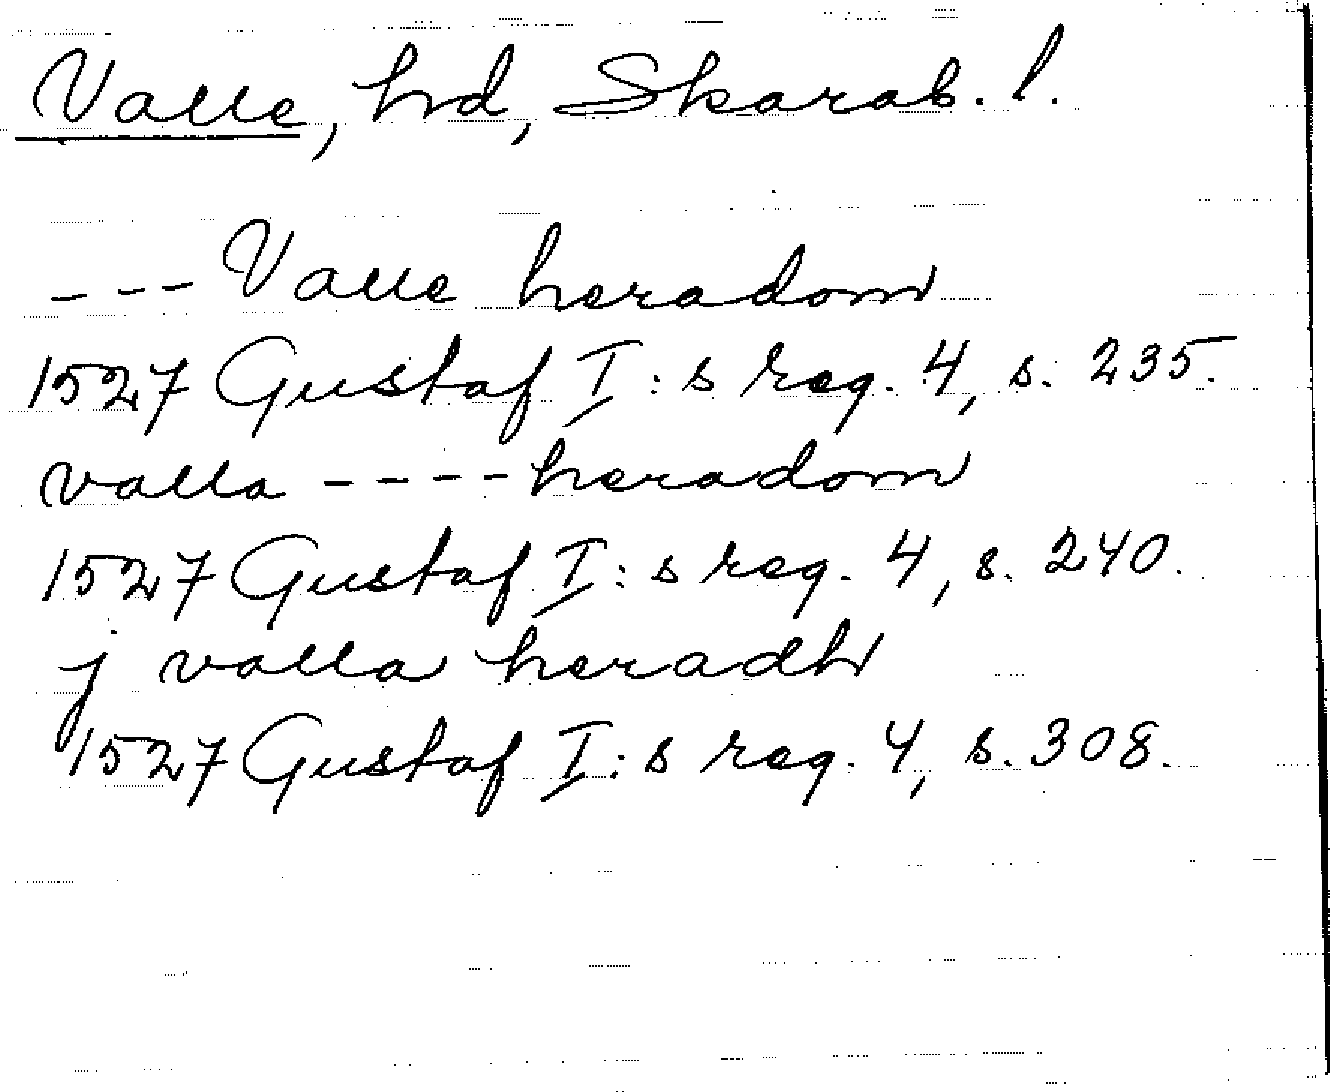 Valle, hd, Skarab. l.
--- Valle heradom
1527 Gustaf I:s reg. 4, s. 235.
valla ---- heradom
1527 Gustaf I:s reg. 4, s. 240.
j valla heradh
1527 Gustaf I:s reg. 4, s. 308.